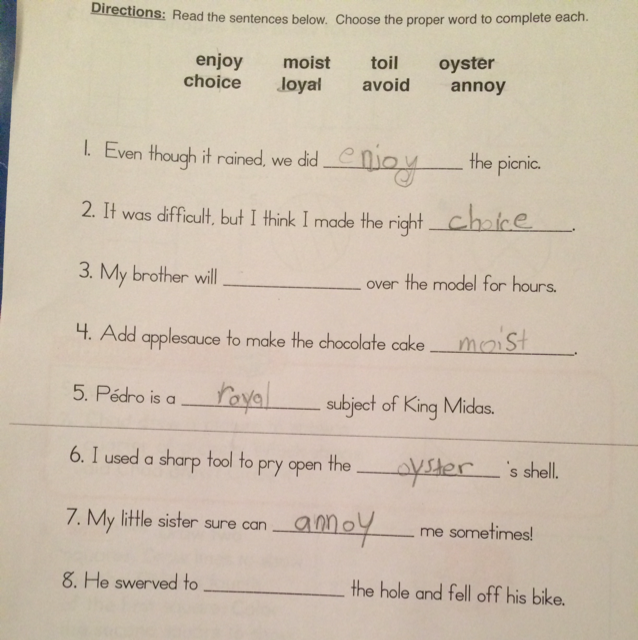 Directions: Read the sentences below. Choose the proper word to complete each.
enjoy moist toil oyster
choice loyal avoid annoy
1. Even though it rained, we did enjoy the picnic.
2. It was difficult, but I think I made the right choice.
3. My brother will ____________ over the model for hours.
4. Add applesauce to make the chocolate cake moist.
5. Pédro is a royal subject of King Midas.
6. I used a sharp tool to pry open the oyster 's shell.
7. My little sister sure can annoy me sometimes!
8. He swerved to ____________ the hole and fell off his bike.